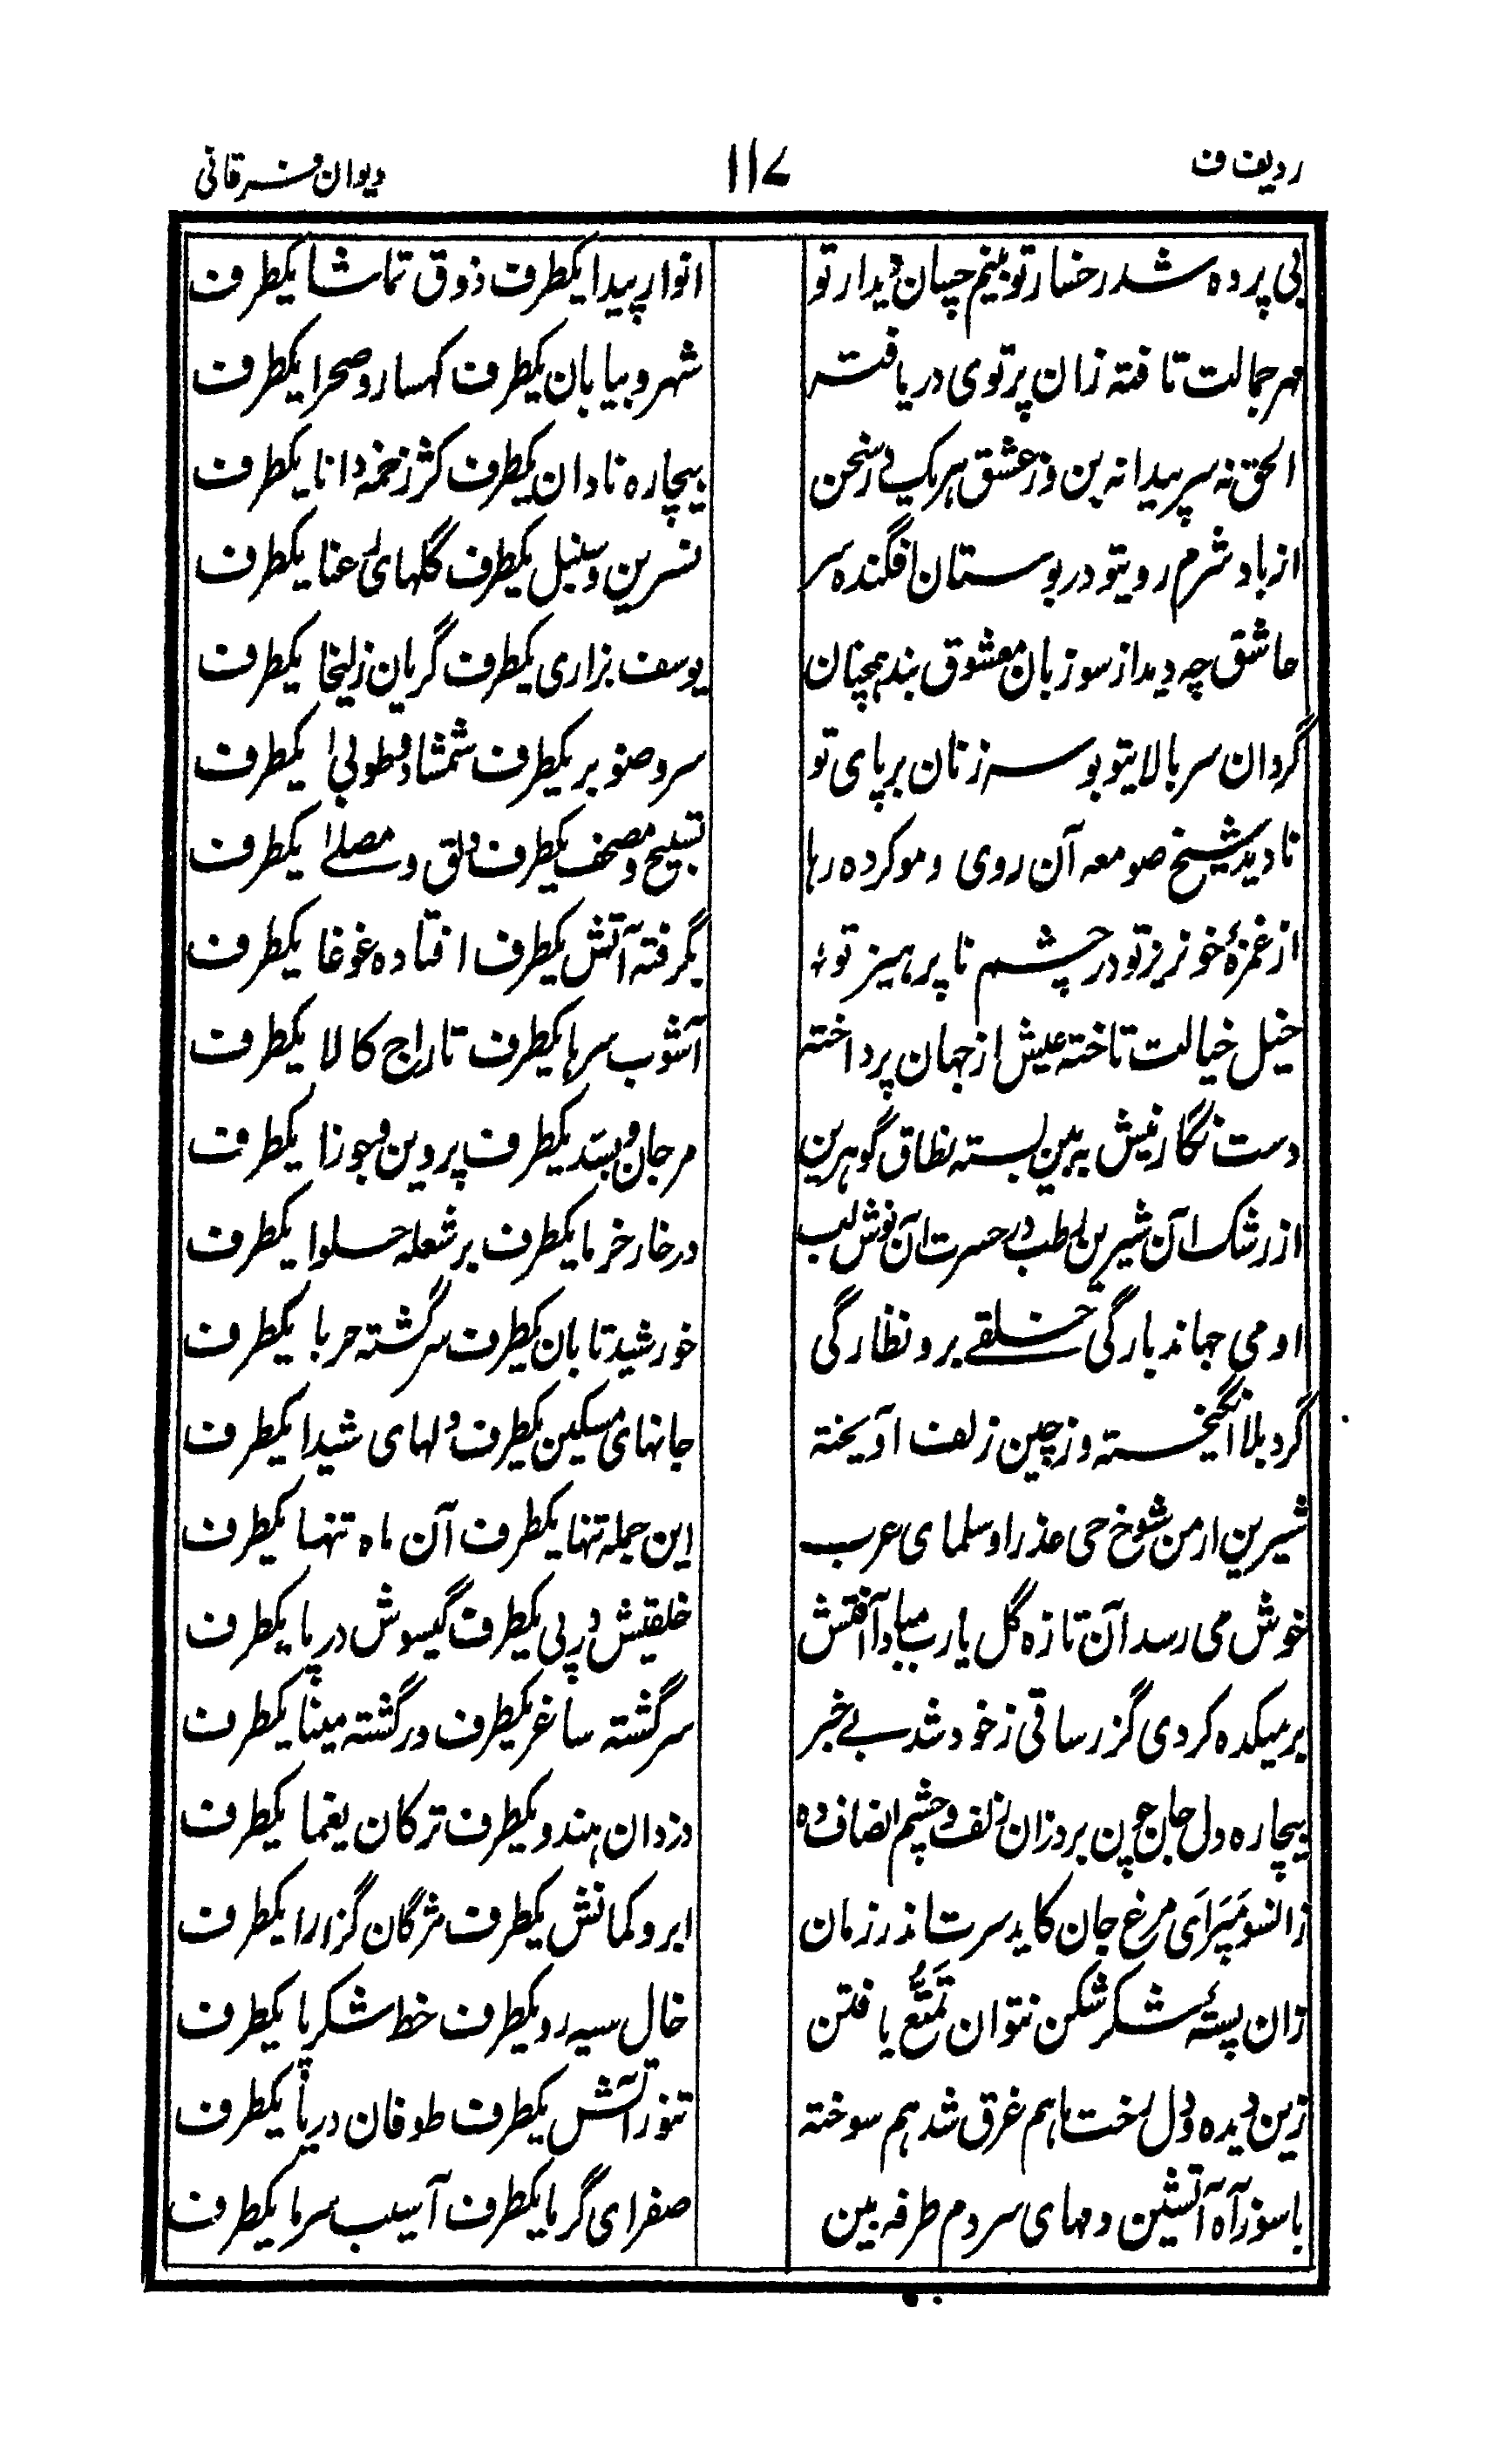 ردیف ف ۱۱۷ دیوان فرقانی
بی پرده شد رخسار تو بینم چسان دیدار تو انوار پیدا یکطرف ذوق تماشا یکطرف
مهر جمالت تافته زان پرتوی دریافته شهر و بیابان یکطرف کهسار و صحرا یکطرف
الحق نه سر پیدا نه بن وز عشق هر یک در سخن بیچاره نادان یکطرف کژ زخمه دانا یکطرف
از باد شرم رویتو در بوستان افگنده سر نسرین و سنبل یکطرف گلهای رعنا یکطرف
عاشق چه دید از سوز بان معشوق بند همچنان یوسف بزاری یکطرف گریان زلیخا یکطرف
گردان سر بالایتو بوسه زنان بر پای تو سرو صنوبر یکطرف شمشاد و طوبیٰ یکطرف
نادیده شیخ صومعه آن روی و مو کرده رها تسبیح و مصحف یکطرف دلق و مصلےٰ یکطرف
از غمزۂ خونریز تو در چشم ناپرهیز تو بگرفته آتش یکطرف افتاده غوغا یکطرف
خیل خیالت تاخته عیش از جهان پرداخته آشوب سرها یکطرف تاراج کالا یکطرف
دست نگارنیش به بین بسته نطاق گوهرین مرجان و بسّد یکطرف پروین و جوزا یکطرف
از رشک آن شیرین رطب در حسرت آن نوش لب در خار خرما یکطرف بر شعله حلوا یکطرف
او می جهاند بارگی خلقے برو نظارگی خورشید تابان یکطرف سرگشته حربا یکطرف
گرد بلا انگیخسته وز چین زلف آویخته جانهای مسکین یکطرف دلهای شیدا یکطرف
شیرین ارمن شوخ حی عذرا و سلمای عرب این جمله تنها یکطرف آن ماه تنها یکطرف
خوش می رسد آن تازه گل یارب مباد آفتش خلقیش در پی یکطرف گیسوش در پا یکطرف
بر میکده کردی گزر ساقی ز خود شد بے خبر سرگشته ساغر یکطرف درگشته مینا یکطرف
بیچاره دل جان چون برد زان زلف و چشم انصاف ده دزدان هندو یکطرف ترکان یغما یکطرف
زانسو مَپَر اَی مرغ جان کاید سرت اندر زمان ابرو کمانش یکطرف مژگان گزارا یکطرف
زان پستۂ شکر شکن نتوان تَمَتُّع یافتن خال سیه رو یکطرف خط شکرپا یکطرف
زین دیده و دل رخت ما هم غرق شد هم سوخته تنور آتش یکطرف طوفان دریا یکطرف
با سوز آه آتشین دمهای سردم طرفه بین صفرای گرما یکطرف آسیب سرما یکطرف